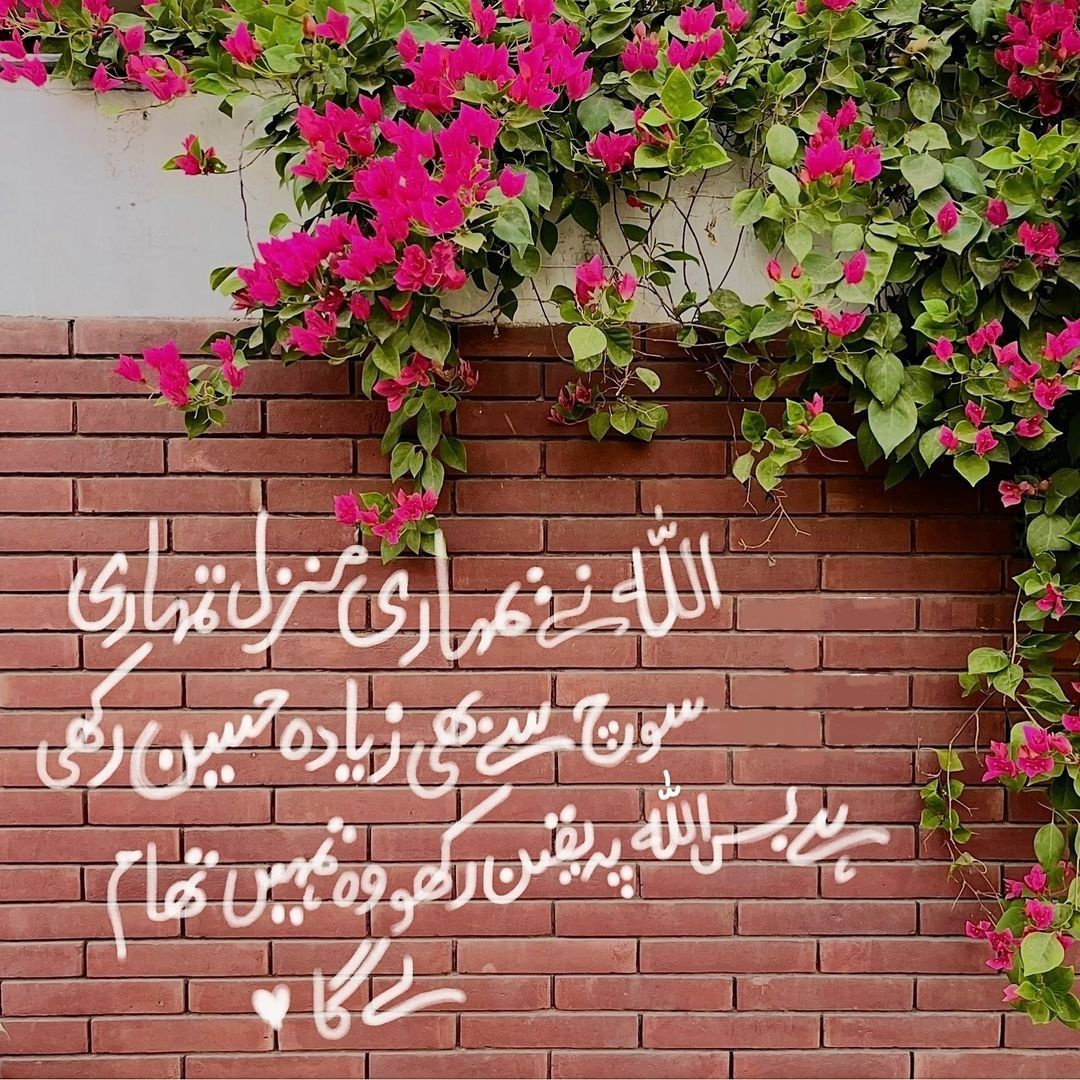 اللّٰہ نے تمہاری منزل تمہاری
سوچ سے بھی زیادہ حسین رکھی
ہے بس اللّٰہ پر یقین رکھو وہ تمہیں تھام
لے گا ♥